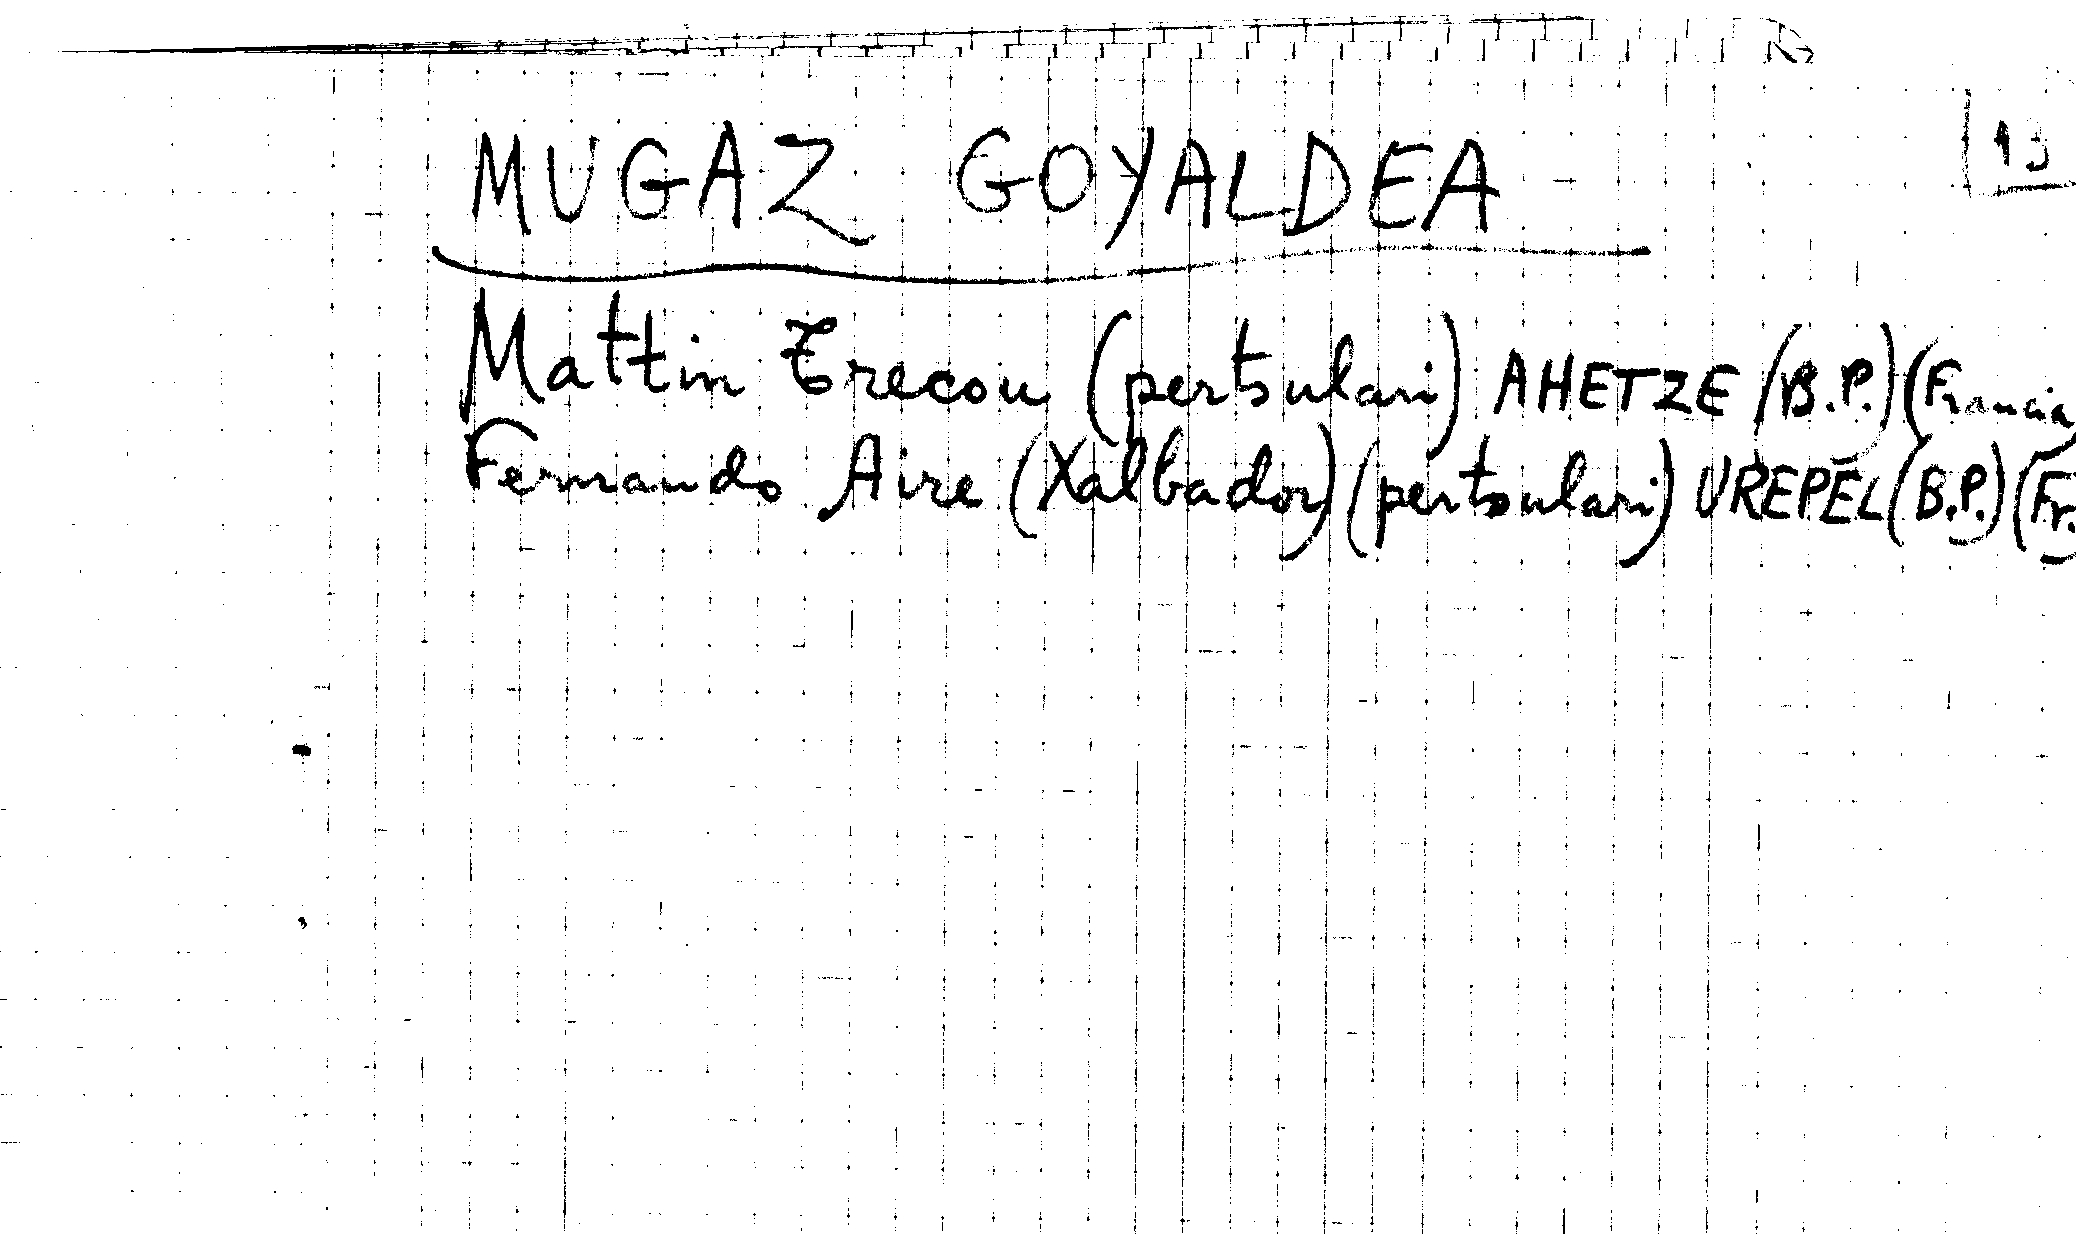 13
MUGAZ GOYALDEA
Mattin Trecou (pertsulari) AHETZE (B.P.) (Francia
Fernando Aire (Xalbador) (pertsulari) UREPEL (B.P.) (Fr.